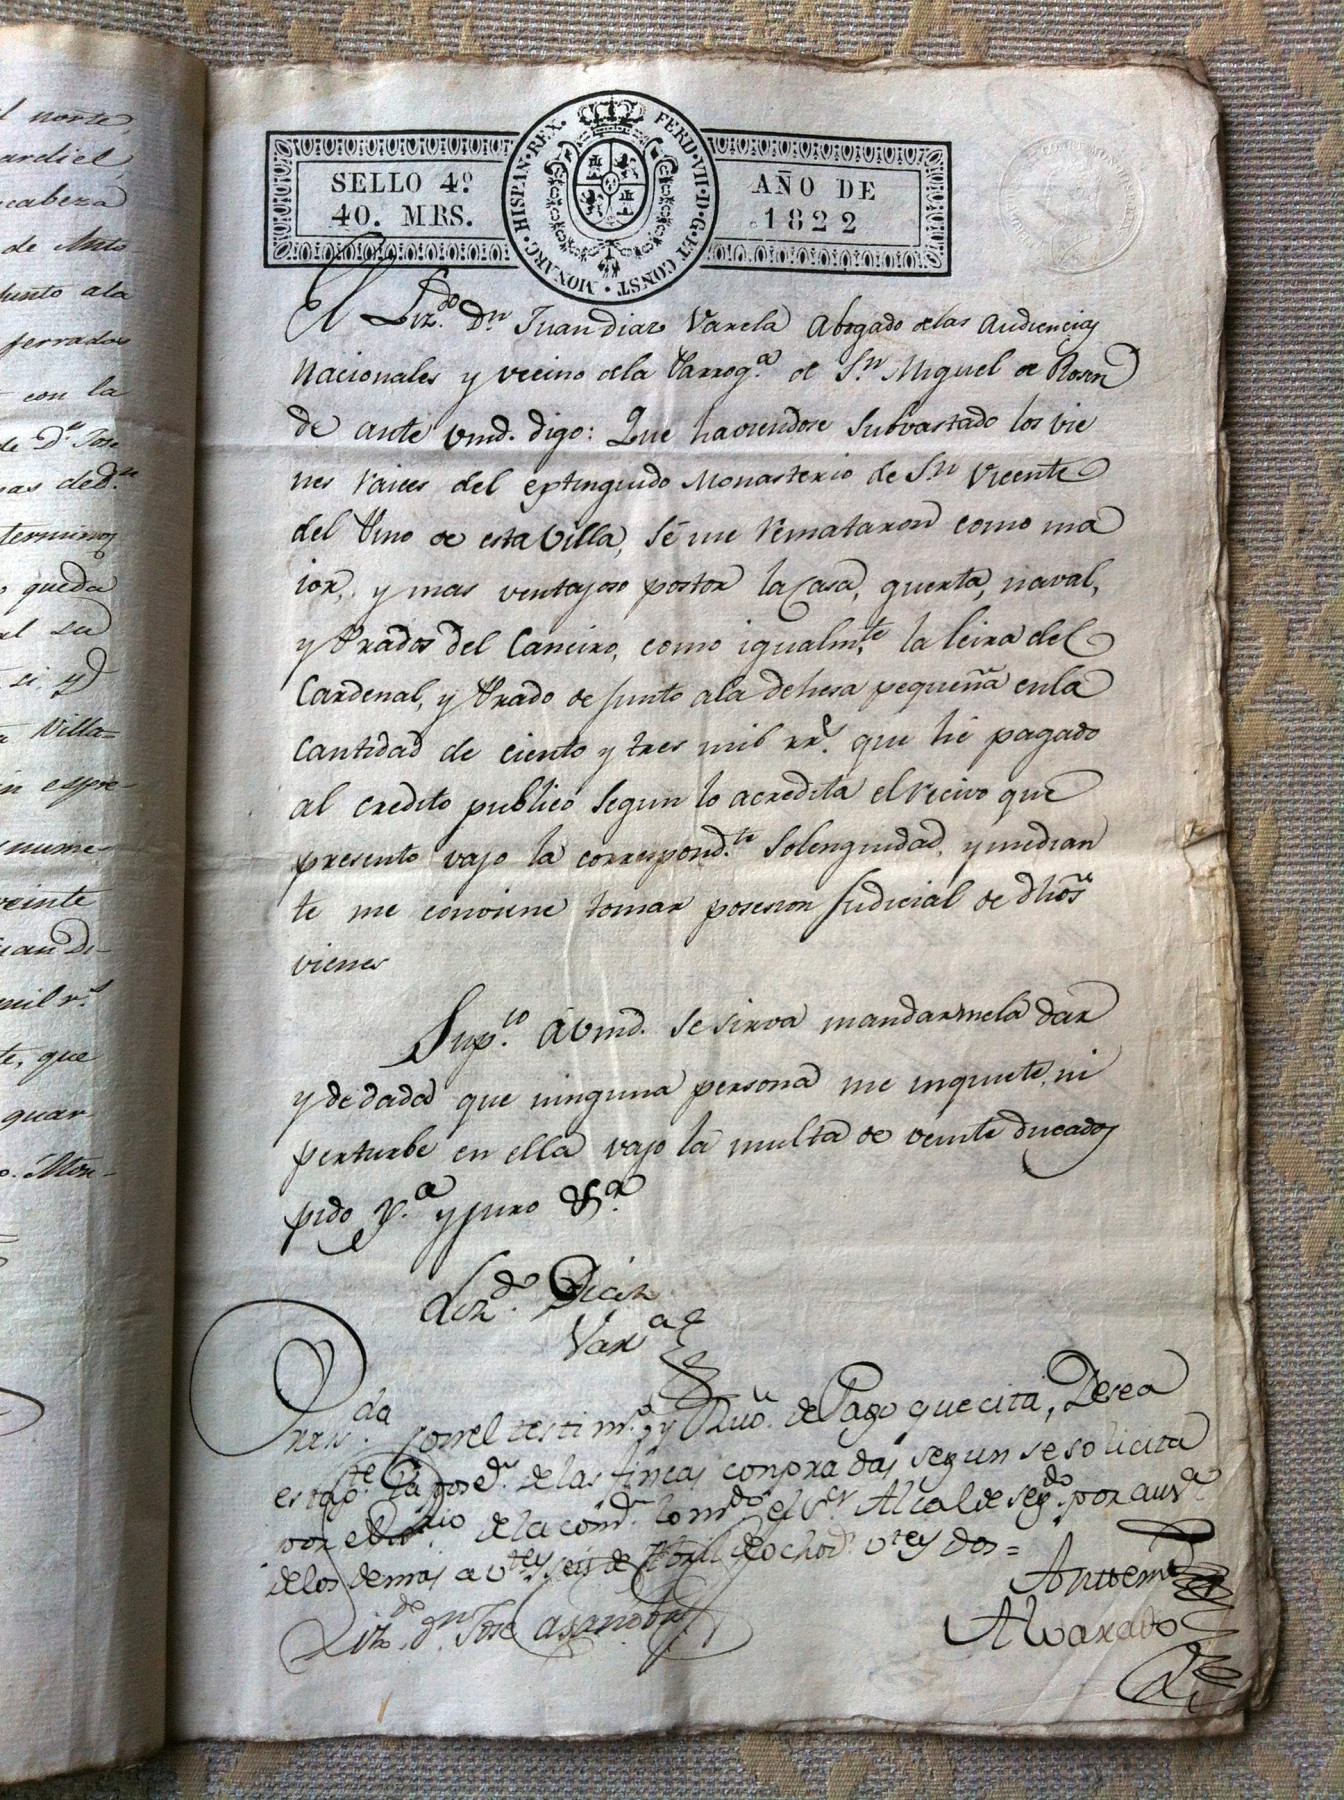 l norte,
ardiel,
cabeza
de Anto
junto ala
ferrados
con la
de D.ª Jose
nas ded.n
terminos
queda
al su
si y
Villa=
in espre-
nume-
veinte
uan Di-
mil r.s
te, que
quar
o. Mon-
SELLO 4º
40. MRS.
HISPAN·REX· FERD·VII·D·G·ET CONST·MONARC·
AÑO DE
1822
El Liz.do Dn Juan diaz Varela Abogado delas Audiencias
Nacionales y vecino dela Parroq.a de S.n Miguel de Rosen
de ante vmd. digo: Que haviendose Subastado los vie
nes raices del extinguido Monasterio de S.n Vicente
del Pino de esta Villa, sé me remataron como ma
ior, y mas ventajoso postor la Casa, guerta, naval,
y Prados del Caneiro, como igualm.te la leira del
Cardenal, y Prado de junto ala dehesa pequeña enla
Cantidad de ciento y tres mil rr.s que hé pagado
al credito publico segun lo acredita el recivo que
presento vajo la correspond.te solemguidad, y median
te me conviene tomar posesion Judicial de dhos
vienes
Sup.co á vmd. se sirva mandarmela dar
y de dada que ninguna persona me inquiete, ni
perturbe en ella vajo la multa de veinte ducados
pido J.a y juro &.a
Lizd.o Diaz
Var.a
Pres.da con el testim.o y Rvo. de Pago que cita, Desea
esta p.te la pos.on de las fincas conpradas segun se solicita
por el de la com.on lo m.do el S.or Alcalde seg.do por aus.a
de los demas a v.tey seis de Abril de ocho.s v.tey dos=
Liz.do dn Jose Casanoba
Antemi
Alvarado